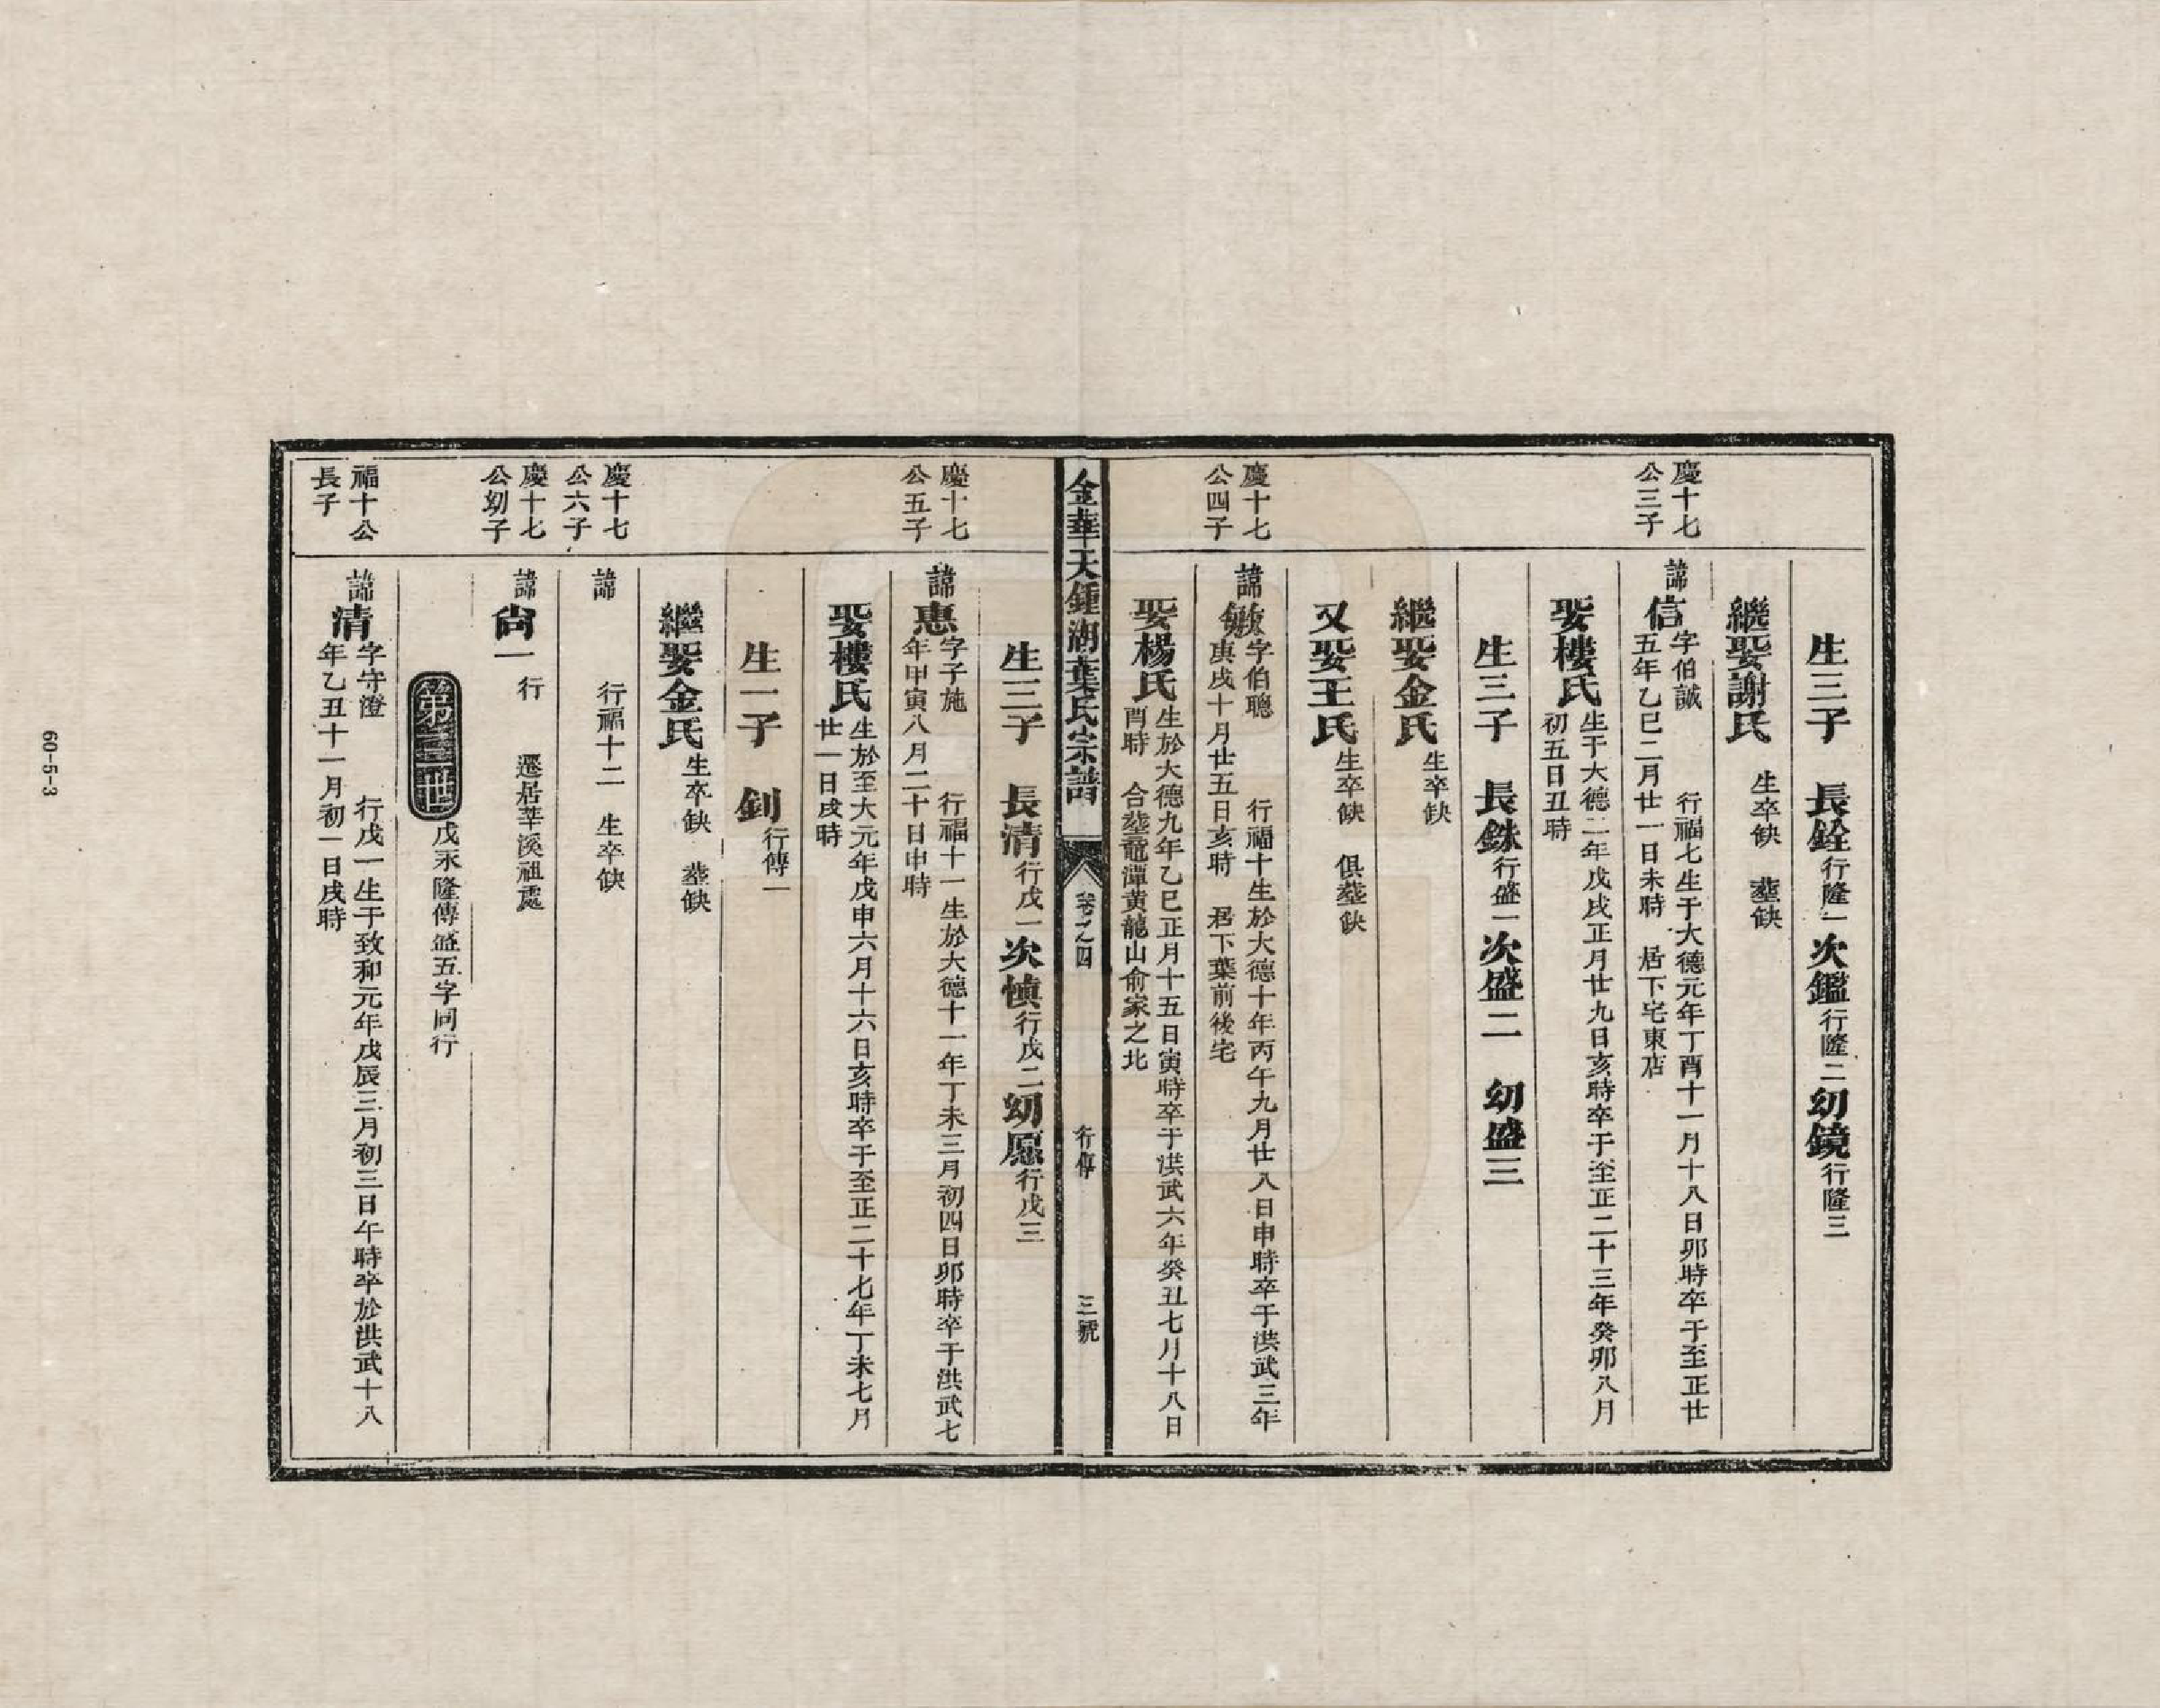 生三子　長銓行隆一次鑑行隆二幼鏡行隆三
繼娶謝氏　生卒缺　塟缺
慶十七
公三子
諱信字伯誠　　行福七生于大德元年丁酉十一月十八日卯時卒于至正廿
五年乙巳二月廿一日未時　居下宅東店
娶樓氏生于大德二年戊戌正月廿九日亥時卒于至正二十三年癸卯八月
初五日丑時
生三子　長銖行盛一次盛二　幼盛三
繼娶金氏生卒缺
又娶王氏生卒缺　俱塟缺
慶十七
公四子
諱敏字伯聰　　行福十生於大德十年丙午九月廿八日申時卒于洪武三年
庚戌十月廿五日亥時　居下葉前後宅
娶楊氏生於大德九年乙巳正月十五日寅時卒于洪武六年癸丑七月十八日
酉時　合塟龍潭黃龍山俞家之北
金華天鍾湖葉氏宗譜　卷之四　行傳　三號
生三子　長清行戊一次慎行戊二幼愿行戊三
慶十七
公五子
諱惠字子施　　行福十一生於大德十一年丁未三月初四日卯時卒于洪武七
年甲寅八月二十日申時
娶樓氏生於至大元年戊申六月十六日亥時卒于至正二十七年丁未七月
廿一日戌時
生一子　釗行傳一
繼娶金氏生卒缺　塟缺
慶十七
公六子
諱　　行福十二　生卒缺
慶十七
公幼子
諱尙一　行　　遷居莘溪祖處
第三世戊永隆傳盛五字同行
福十公
長子
諱清字守澄　　行戊一生于致和元年戊辰三月初三日午時卒於洪武十八
年乙丑十一月初一日戌時
60-5-3